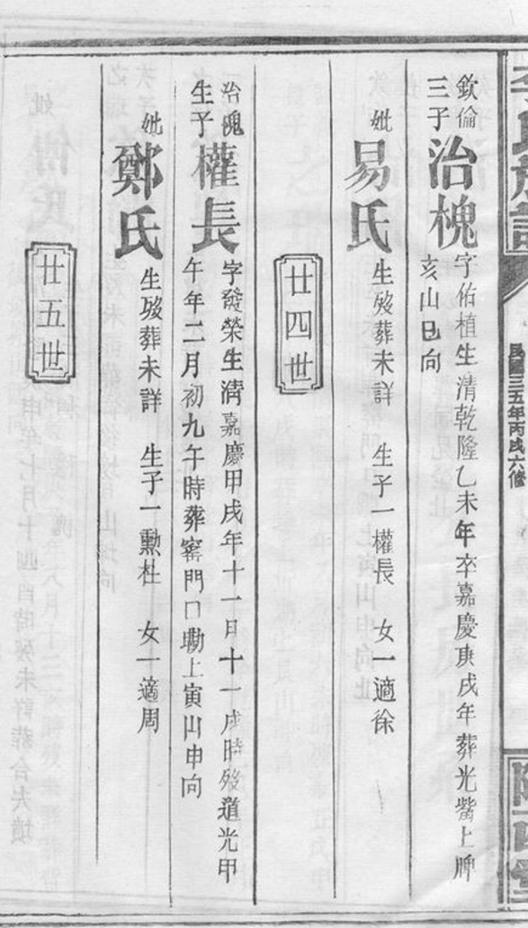 李氏族譜
民國三五年丙戌六修
隴西堂
欽倫
三子
治槐
字佑植生清乾隆乙未年卒嘉慶庚戌年葬光嘴上脾
亥山巳向
妣
易氏
生歿葬未詳 生子一權長 女一適徐
廿四世
治槐
生子
權長
字發榮生清嘉慶甲戌年十一日十一戌時歿道光甲
午年二月初九午時葬窰門口墈上寅山申向
妣
鄭氏
生歿葬未詳 生子一勲杜 女一適周
廿五世